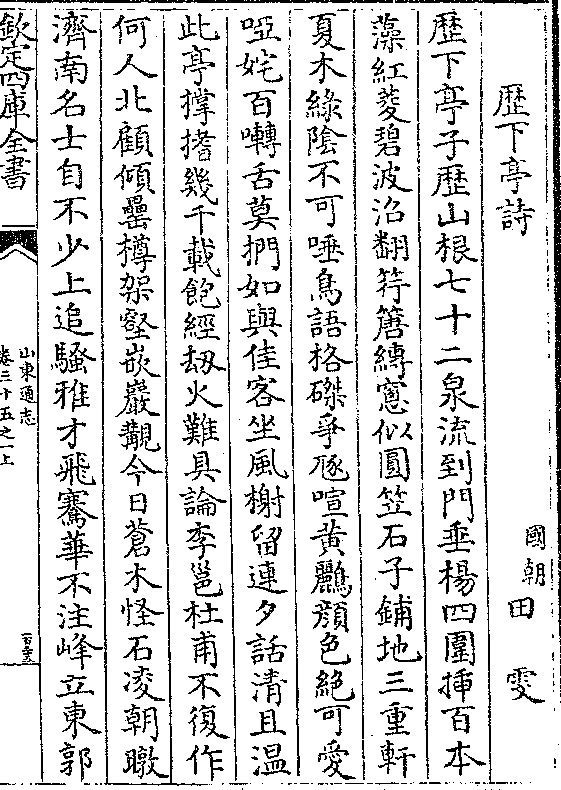 歷下亭詩
國朝田雯
歷下亭子歷山根七十二泉流到門垂楊四圍揷百本
藻紅菱碧波沿翻筕篖縛窻似圓笠石子鋪地三重軒
夏木綠陰不可唾鳥語格磔爭豗喧黃鸝顔色絶可愛
啞姹百囀舌莫捫如與佳客坐風榭留連夕話清且温
此亭撐㨷幾千載飽經刼火難具論李邕杜甫不復作
何人北顧傾罍樽架壑嵌巖覩今日蒼木怪石凌朝暾
濟南名士自不少上追騷雅才飛騫華不注峰立東郭
欽定四庫全書
山東通志
卷三十五之一上